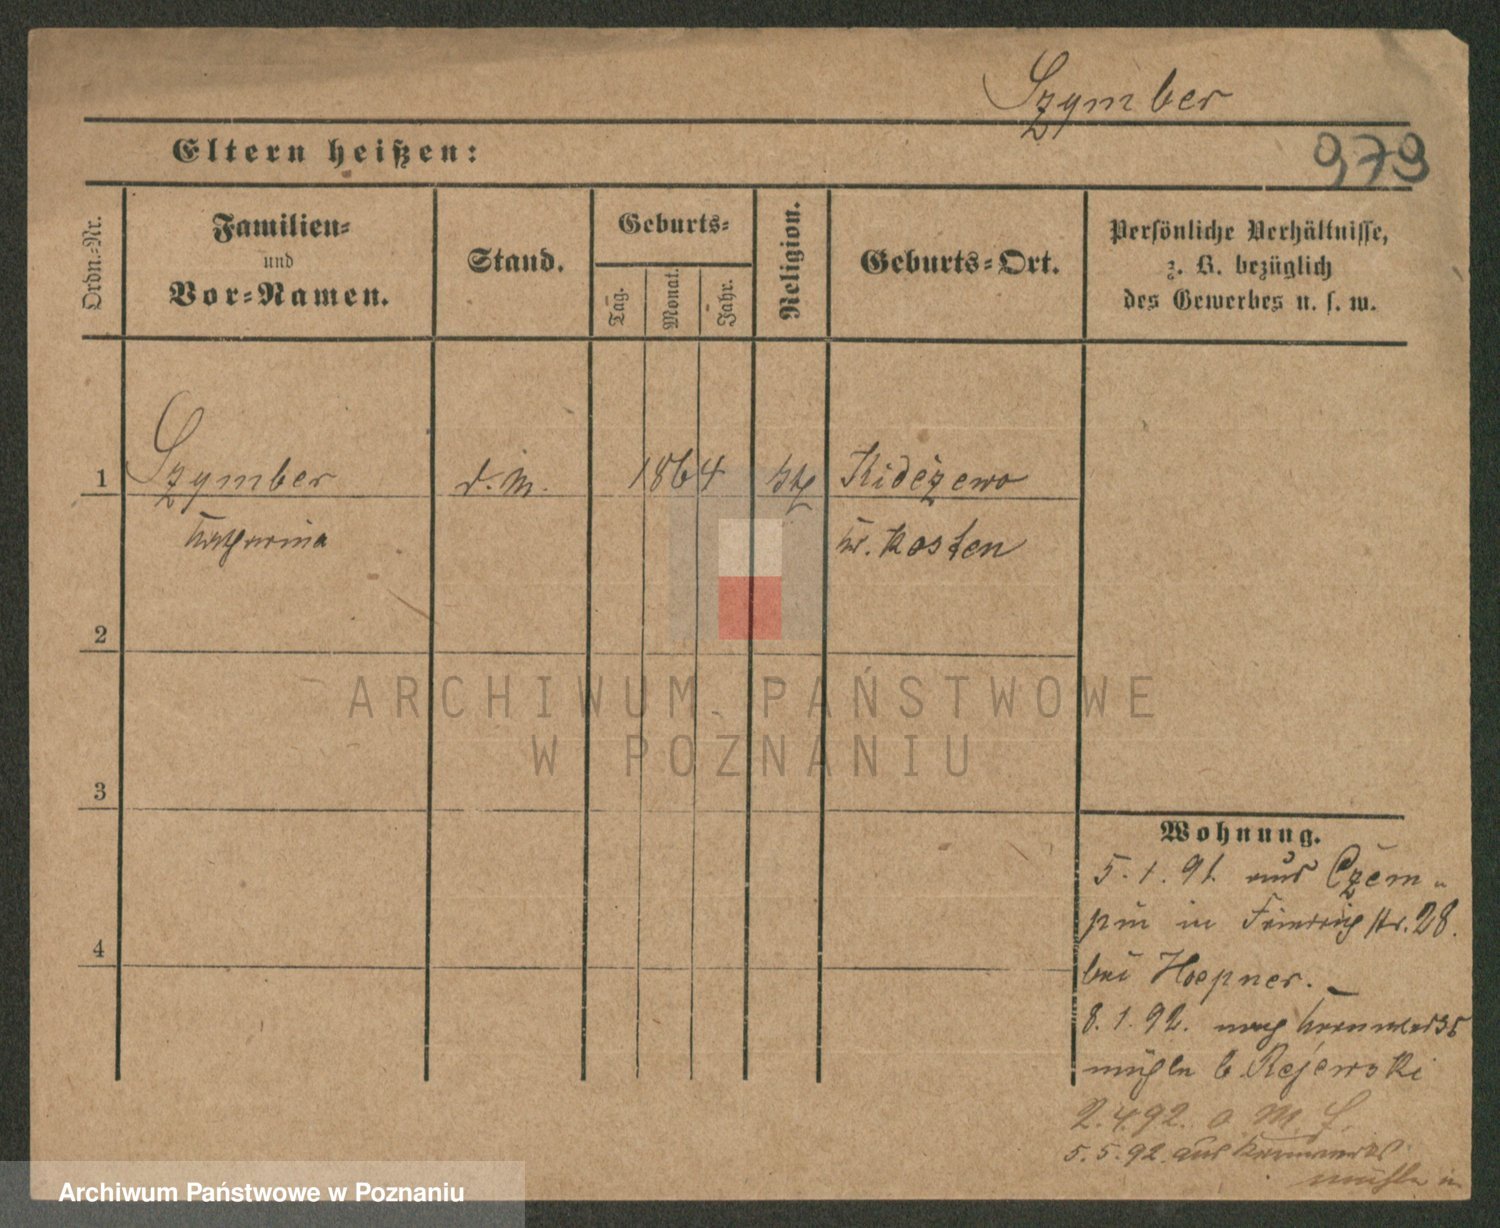 Szymber
979
Eltern heißen:
Ordn.-Nr.
Familien-
und
Vor-Namen.
Stand.
Geburts-
Tag.
Monat.
Jahr.
Religion.
Geburts-Ort.
Persönliche Verhältnisse,
z. B. bezüglich
des Gewerbes u. s. w.
1
Szymber
d. M.
1864
kth
Katharina
Kr. Kosten
2
3
4
ARCHIWUM PAŃSTWOWE
W POZNANIU
Wohnung.
5.1.91. aus Czem-
pin in Friedrichstr. 28.
bei Hoepner.
8.1.92. nach
mühle b. Rejewski
2.4.92. o. M. f.
5.5.92. aus
mühle in
Archiwum Państwowe w Poznaniu